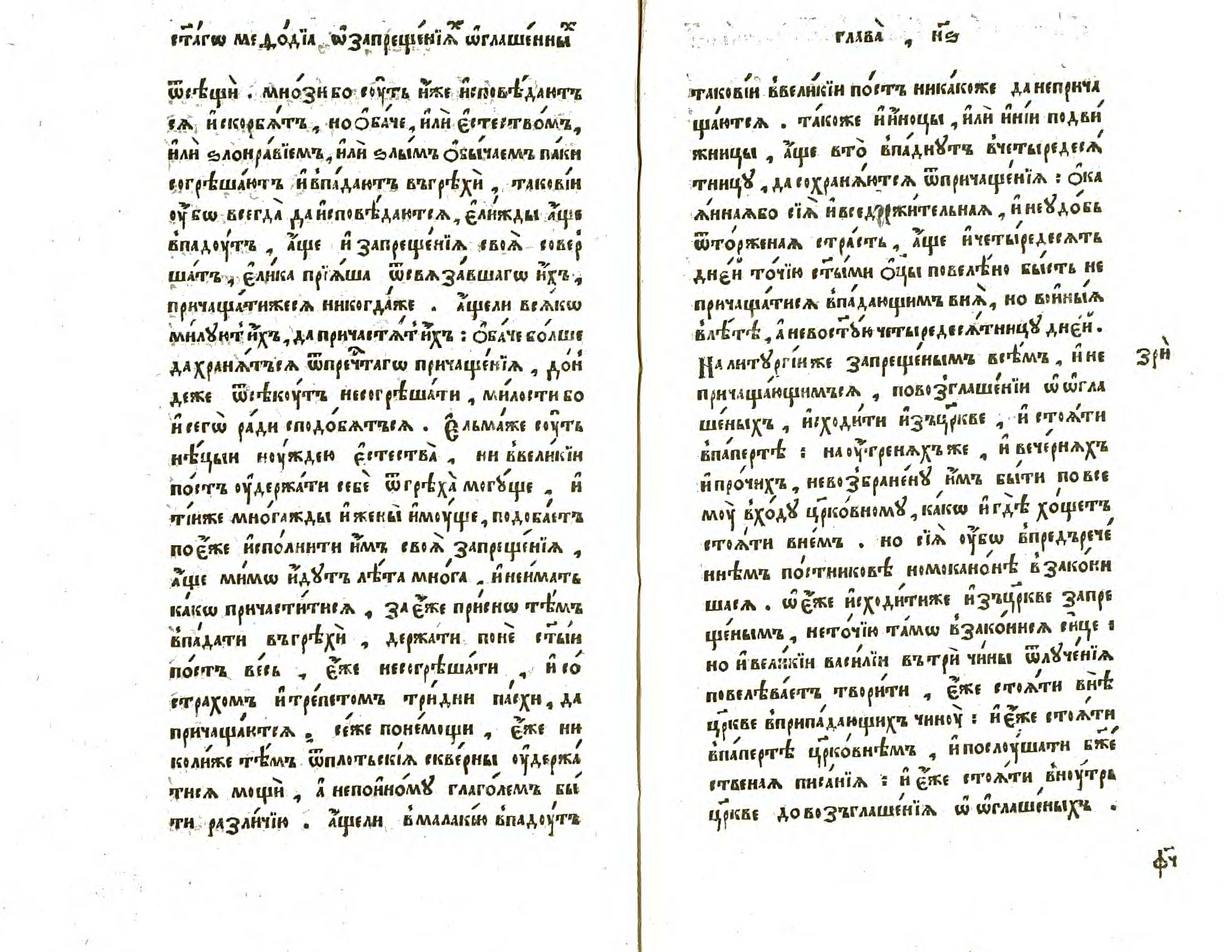 ст҃а́гѡ меѳо́дїа ѡ҆запреще́нїи̑ х ѡ҆глаше́нныⷯ
ѿсѣщѝ . мно́зи бо сꙋ́ть и҆́же и҆сповѣ́даютъ
сѧ и҆скорбѧ́тъ , но ѻ҆ба́че , и҆лѝ є҆стество́мъ ,
и҆лѝ ѕлонра́вїемъ , и҆лѝ ѕлы́мъ ѻ҆бы́чаемъ па́ки
согрѣша́ютъ и҆впа́даютъ въгрѣхѝ , такові́и
оу҆́бѡ всегда̀ да и҆сповѣ́даютсѧ , є҆ли́жды а҆́ще
впадоу́тъ , а҆́ще и҆ запреще́нїѧ своѧ̀ совер
ша́тъ , є҆ли́ка прїѧ́ша ѿсвѧза́вшагѡ и҆́хъ ,
причаща́тижесѧ никогда́же . а҆́щели всѧ́кѡ
ми́луютъ и҆́хъ , да причастѧ́тъ и҆́хъ : ѻ҆ба́че бо́лше
да хранѧ́тъсѧ ѿпреч҇тагѡ причаще́нїѧ , до́н
деже ѿсѣкоу́тъ несогрѣша́ти , ми́лости бо
и҆ сегѡ̀ ра́ди сподо́бѧтъсѧ . є҆льма́же соу́ть
нѣ́цыи ноу́ждею є҆стества̀ , ни ввели́кїи
по́стъ оу҆держа́ти себѐ ѿгрѣха̀ могу́ще , и҆
ті́иже мно́гажды и҆ жены̀ и҆мо́уще , подоба́етъ
по є҆́же и҆спо́лнити и҆̀мъ своѧ̀ запреще́нїѧ ,
а҆́ще ми́мѡ и҆́дутъ лѣ́та мно́га , и҆неи́мать
ка́кѡ причасти́тисѧ , за є҆́же при́снѡ тѣ́мъ
впада́ти въгрѣхѝ , держа́ти понѐ ст҃ы́и
по́стъ ве́сь , є҆́же несогрѣша́ти , и҆ со́
стра́хомъ и҆тре́петомъ три́дни па́схи , да
причаща́ютсѧ . се́же поне́мощи , є҆́же ни
коли́же тѣ́мъ ѿпло́тьскїѧ скве́рны оу҆держа́
тисѧ мощѝ , а҆ непои́ному глаго́лемъ бы́
ти разли́чїю . а҆́щели вмалакі́ю впадоу́тъ
глава̀ , н҃ѕ
такові́и ввели́кїи по́стъ ника́коже да неприча
ща́ютсѧ . та́коже и҆ и҆́ноцы , и҆лѝ и҆ні́и подви́
жницы , а҆́ще вто̀ впадну́тъ вчетыредесѧ́
тницу , да сохранѧ́ютсѧ ѿпричаще́нїѧ : ѻ҆ка
ѧ́ннаѧбо сїѧ̀ и҆ вседержи́тельнаѧ , и҆ неудо́бь
ѿто́рженаѧ стра́сть , а҆́ще и҆четы́редесѧть
дне́й то́чїю ст҃ы́ми ѻ҆ц҃ы̀ повелѣ́но бы́сть не
причаща́тисѧ впа́дающимъ внѧ̀ , но во и҆ны́ѧ
влѣ́тѣ , а҆ невост҃у́ю четыредесѧ́тницу дне́й .
На литургі́и же запреще́нымъ всѣ́мъ , и҆ не
причаща́ющимъсѧ , повозглаше́нїи ѡ҆ ѡ҆гла
ше́ныхъ , и҆сходи́ти и҆зъц҃ркве , и҆ стоѧ́ти
впа́пертѣ : на оу҆́тренѧхъже , и҆ вече́рнѧхъ
и҆ про́чихъ , невозбране́ну и҆̀мъ бы́ти по все
моу̀ вхо́ду ц҃рко́вному , ка́кѡ и҆ гдѣ̀ хо́щетъ
стоѧ́ти вне́мъ . но сїѧ̀ оу҆́бѡ впредърече́
ннѣмъ по́стниковѣ номокано́нѣ взако́ни
шасѧ . ѡ҆ є҆́же и҆сходи́тиже и҆зъц҃ркве запре
ще́нымъ , нето́чїю та́мѡ взако́нисѧ си́це :
но и҆ вели́кїи васи́лїи въ трѝ чи́ны ѿлуче́нїѧ
повелѣва́етъ твори́ти , є҆́же стоѧ́ти внѣ̀
ц҃ркве вприпа́дающихъ чиноу̀ : и҆ є҆́же стоѧ́ти
впа́пертѣ ц҃рко́внѣмъ , и҆ послоу́шати бж҃е́
ственаѧ писа́нїѧ : и҆ є҆́же стоѧ́ти вноу́трь
ц҃ркве до возъглаше́нїѧ ѡ҆ ѡ҆глаше́ныхъ .
зрѝ
ф҃ч